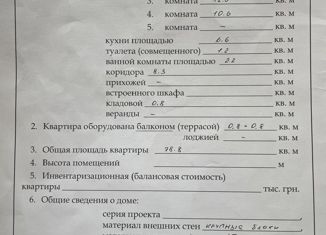 3. комната 12.0 кв. м
4. комната 10.6 кв. м
5. комната – кв. м
кухни площадью 6.6 кв. м
туалета (совмещенного) 1.2 кв. м
ванной комнаты площадью 2.2 кв. м
коридора 8.3 кв. м
прихожей – кв. м
встроенного шкафа – кв. м
кладовой 0.8 кв. м
веранды – кв. м
2. Квартира оборудована балконом (террасой) 0,8 - 0,8 кв. м
лоджией – кв. м
3. Общая площадь квартиры 78.8 кв. м
4. Высота помещений м
5. Инвентаризационная (балансовая стоимость)
квартиры тыс. грн.
6. Общие сведения о доме:
серия проекта
материал внешних стен крупные блоки